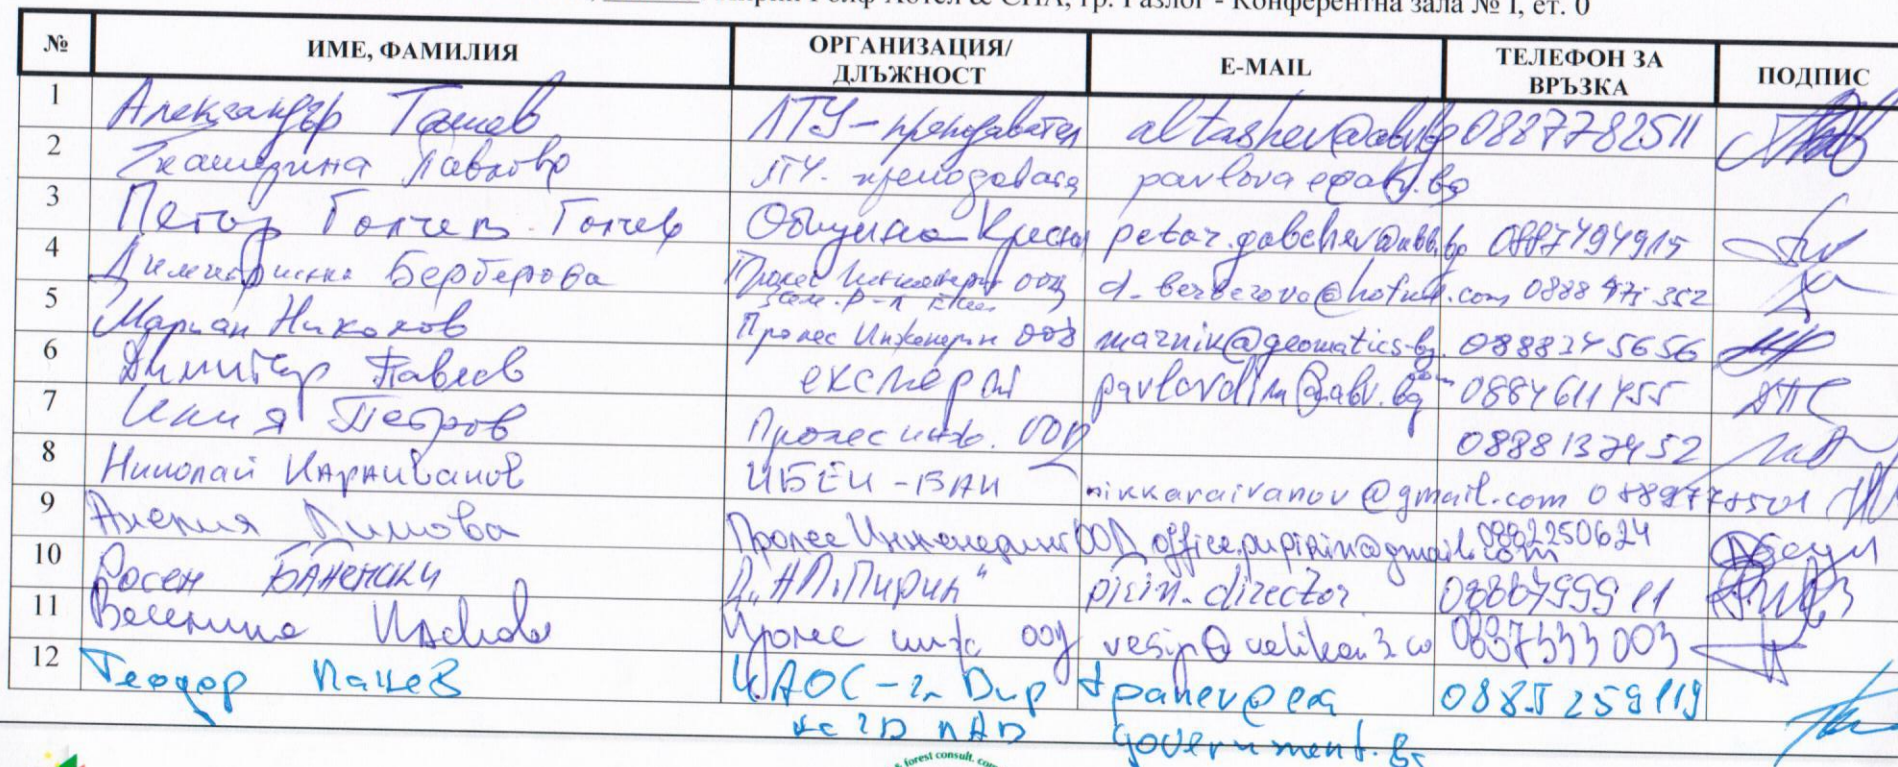 Голф Хотел & СПА, гр. Разлог - Конферентна зала № 1, ет. 0
№ ИМЕ, ФАМИЛИЯ ОРГАНИЗАЦИЯ/ ДЛЪЖНОСТ E-MAIL ТЕЛЕФОН ЗА ВРЪЗКА ПОДПИС
1 Александър Ташев ЛТУ - преподавател altashev@abv.bg 0887782511
2 Екатерина Павлова ЛТУ. преподавател pavlovae@abv.bg
3 Петър Гопчев Община Кресна 0887494915
4 Димитринка Берберова Пролес Инженеринг ООД d_berberova@hotmail.com 0888 975 352
5 Мариан Николов Пролес Инженеринг ООД marnik@geomatics-bg. 0888245656
6 Димитър Павлов експерт pavlovdim@abv.bg 0884611455
7 Илия Петров Пролес инж. ООД 0888137452
8 Николай Караиванов ИБЕИ - БАН nikkaraivanov@gmail.com
9 Анелия Димова Пролес Инженеринг ООД office.pupirin@gmail.com 0882250624
10 Росен Баненски Д „НП Пирин“ pirin_director
11 Веселина Пролес инж ООД 0897333003
12 Теодор Панев ИАОС - гл. Дир tpanev@eea 0885259119
government.bg
forest consult. com